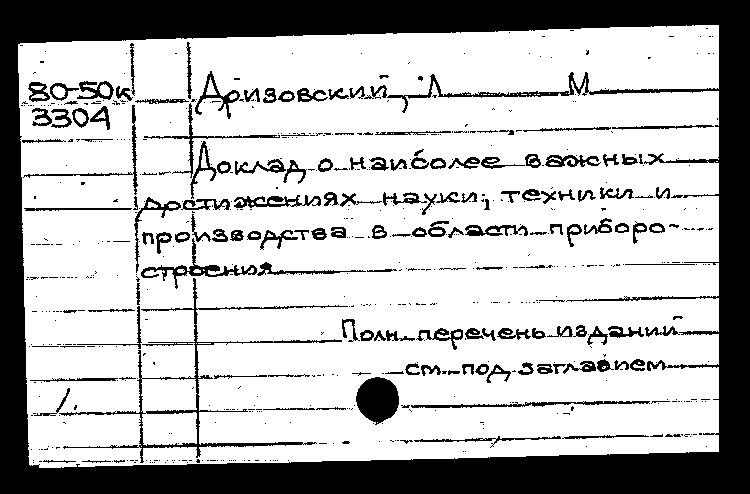 80-50к
3304
Дризовский, Л М
Доклад о наиболее важных
достижениях науки, техники и
производства в области приборо-
строения
Полн. перечень изданий
см. под заглавием
1.